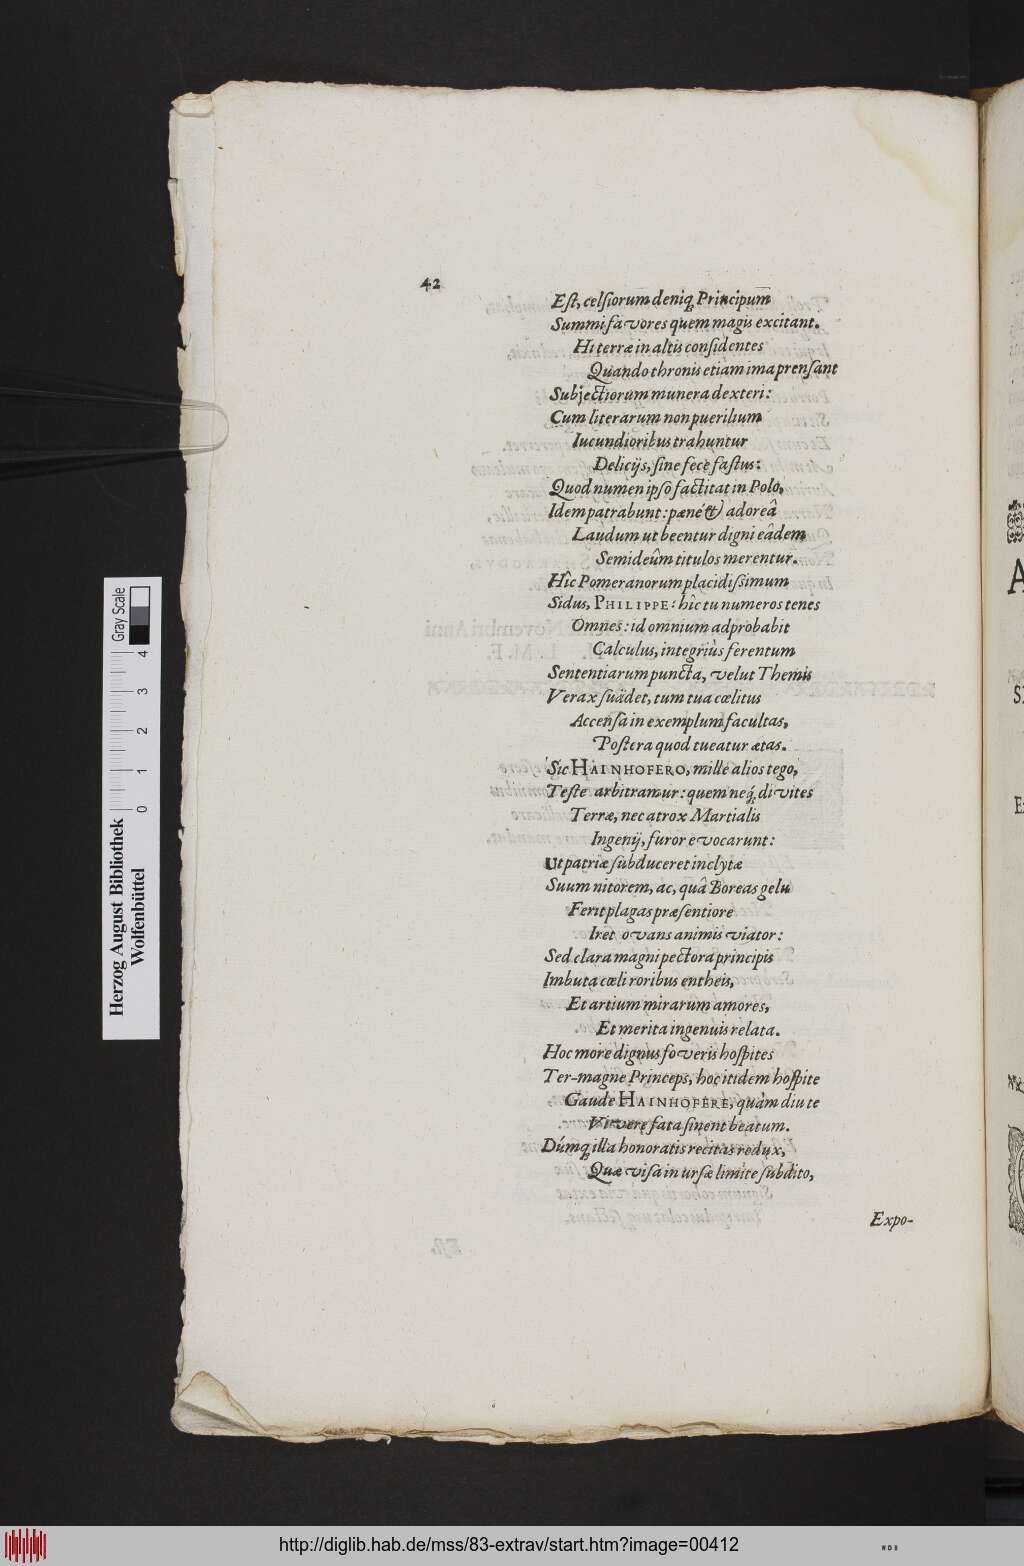 42
Est, celsiorum deniq; Principum
Summi favores quem magis excitant.
Hi terræ in altis considentes
Quando thronis etiam ima prensant
Subjectiorum munera dexteri:
Cum literarum non puerilium
Iucundioribus trahuntur
Delicijs, sine fece fastus:
Quod numen ipso factitat in Polo,
Idem patrabunt: pæné & adoreâ
Laudum ut beentur digni eâdem
Semideûm titulos merentur.
Hîc Pomeranorum placidissimum
Sidus, PHILIPPE: hîc tu numeros tenes
Omnes: id omnium adprobabit
Calculus, integriùs ferentum
Sententiarum puncta, velut Themis
Verax suädet, tum tua cœlitus
Accensa in exemplum facultas,
Postera quod tueatur ætas.
Sic HAINHOFERO, mille alios tego,
Teste arbitramur: quem neq; divites
Terræ, nec atrox Martialis
Ingenij, furor evocarunt:
Ut patriæ subduceret inclytæ
Suum nitorem, ac, quâ Boreas gelu
Ferit plagas præsentiore
Iret ovans animis viator:
Sed clara magni pectora principis
Imbuta cœli roribus entheis,
Et artium mirarum amores,
Et merita ingenuis relata.
Hoc more dignus foveris hospites
Ter-magne Princeps, hoc itidem hospite
Gaude HAINHOFERE, quàm diu te
Vivere fata sinent beatum.
Dúmq; illa honoratis recitas redux,
Quæ visa in ursæ limite subdito,
Expo-
Herzog August Bibliothek
Wolfenbüttel
0 1 2 3 4
Gray Scale
http://diglib.hab.de/mss/83-extrav/start.htm?image=00412